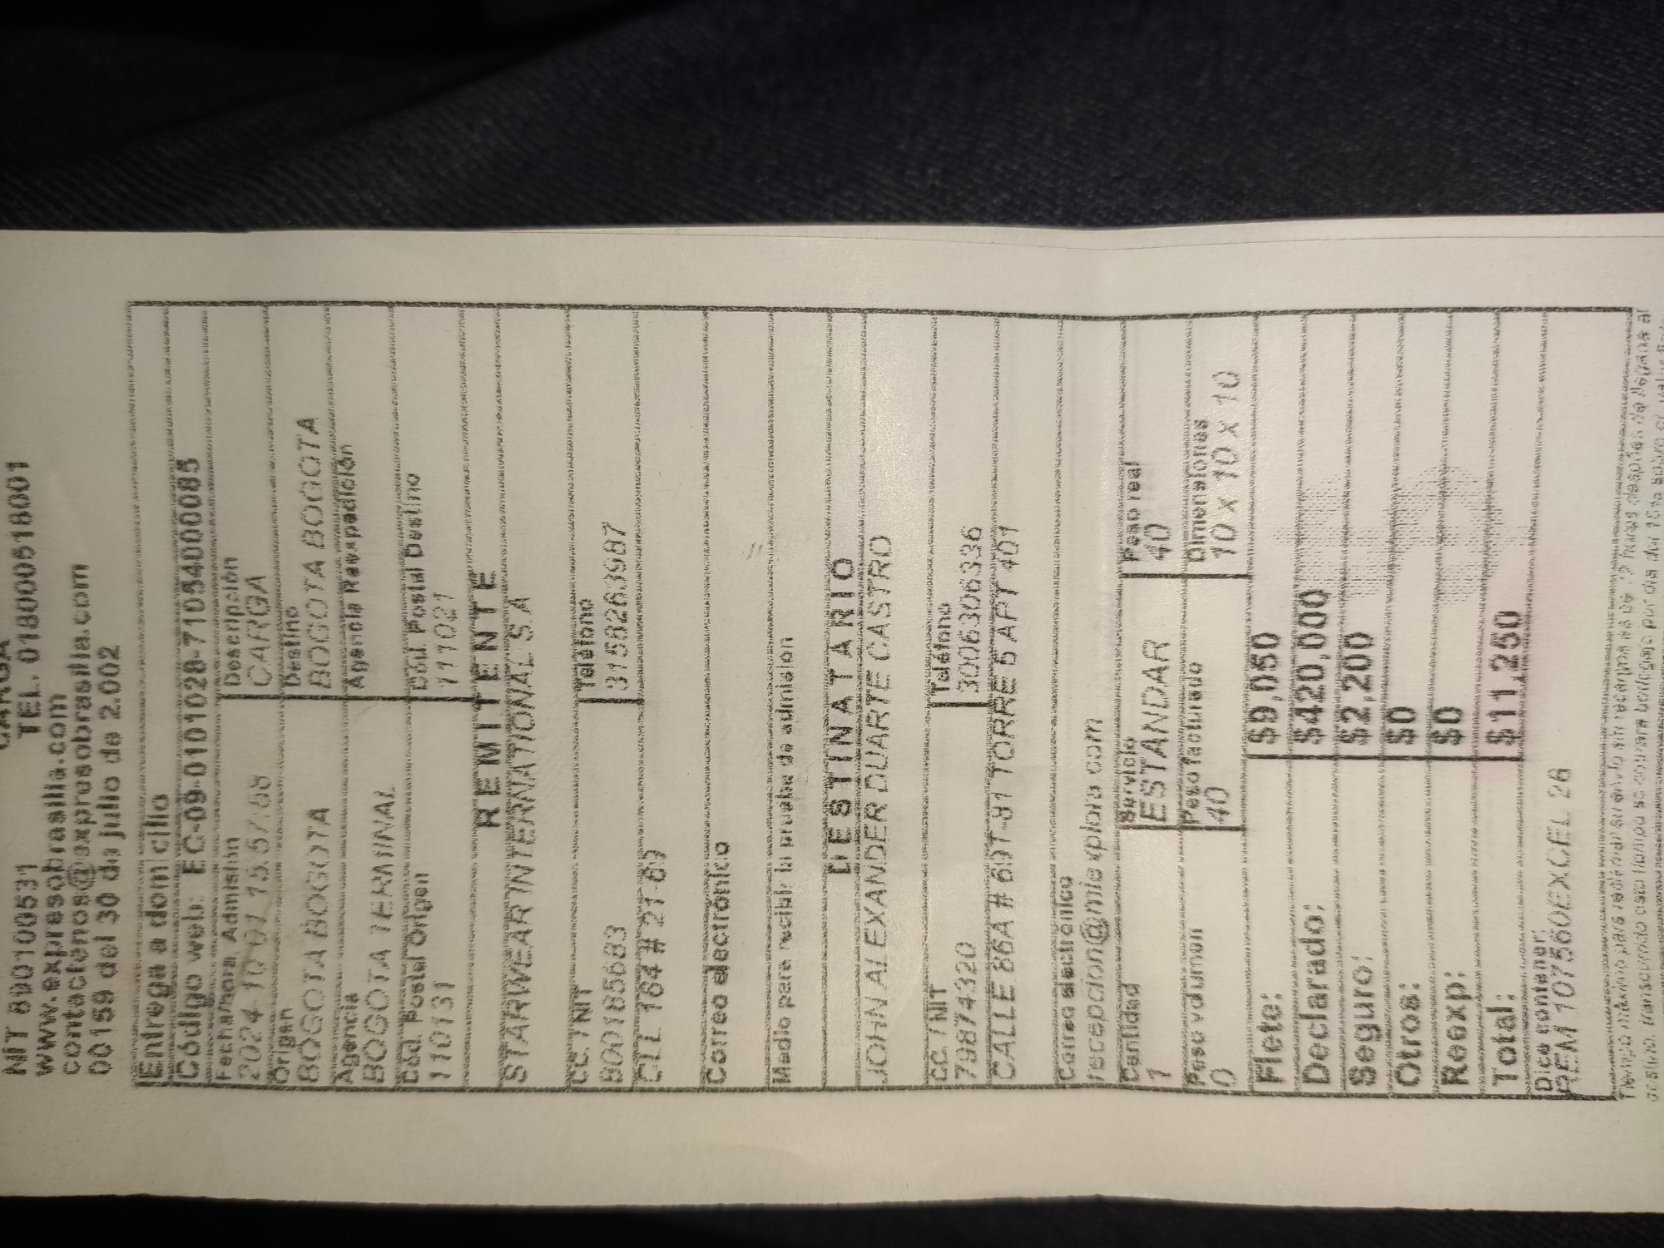 CARGA
NIT 890100531 TEL. 018000518001
www.expresobrasilia.com
contactenos@expresobrasilia.com
00159 del 30 de julio de 2.002
Entrega a domicilio
Código web: EC-09-0101028-7105400085
Fecha/hora Admisión Descripción
2024-10-01 15:57:58 CARGA
Origen Destino
BOGOTA BOGOTA BOGOTA BOGOTA
Agencia Agencia Reexpedición
BOGOTA TERMINAL
Cód. Postal Origen Cód. Postal Destino
110131 111021
REMITENTE
STARWEAR INTERNATIONAL S.A
CC. / NIT Teléfono
800185683 3158263987
CLL 164 # 21-69
Correo electrónico
Medio para recibir la prueba de admisión
DESTINATARIO
JOHN ALEXANDER DUARTE CASTRO
CC. / NIT Teléfono
79874320 3006306336
CALLE 86A # TORRE 5 APT 401
Correo electrónico
Cantidad Servicio Peso real
1 ESTANDAR 40
Peso volumen Peso facturado Dimensiones
0 40 10 x 10 x 10
Flete: $9,050
Declarado: $420,000
Seguro: $2,200
Otros: $0
Reexp: $0
Total: $11,250
Dice contener:
REM 107560EXCEL 26